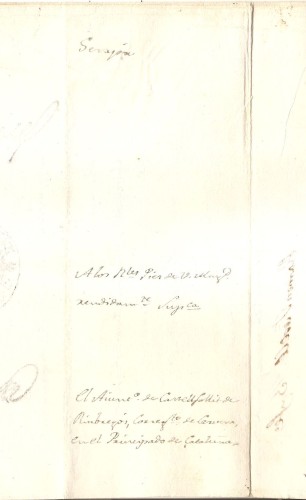 A los Rles Pies de V. Magd.
rendidamte Suplica
El Aiunto. de Castellfollit de
Riubregós, Correxto de Cervera,
en el Principado de Cataluña.